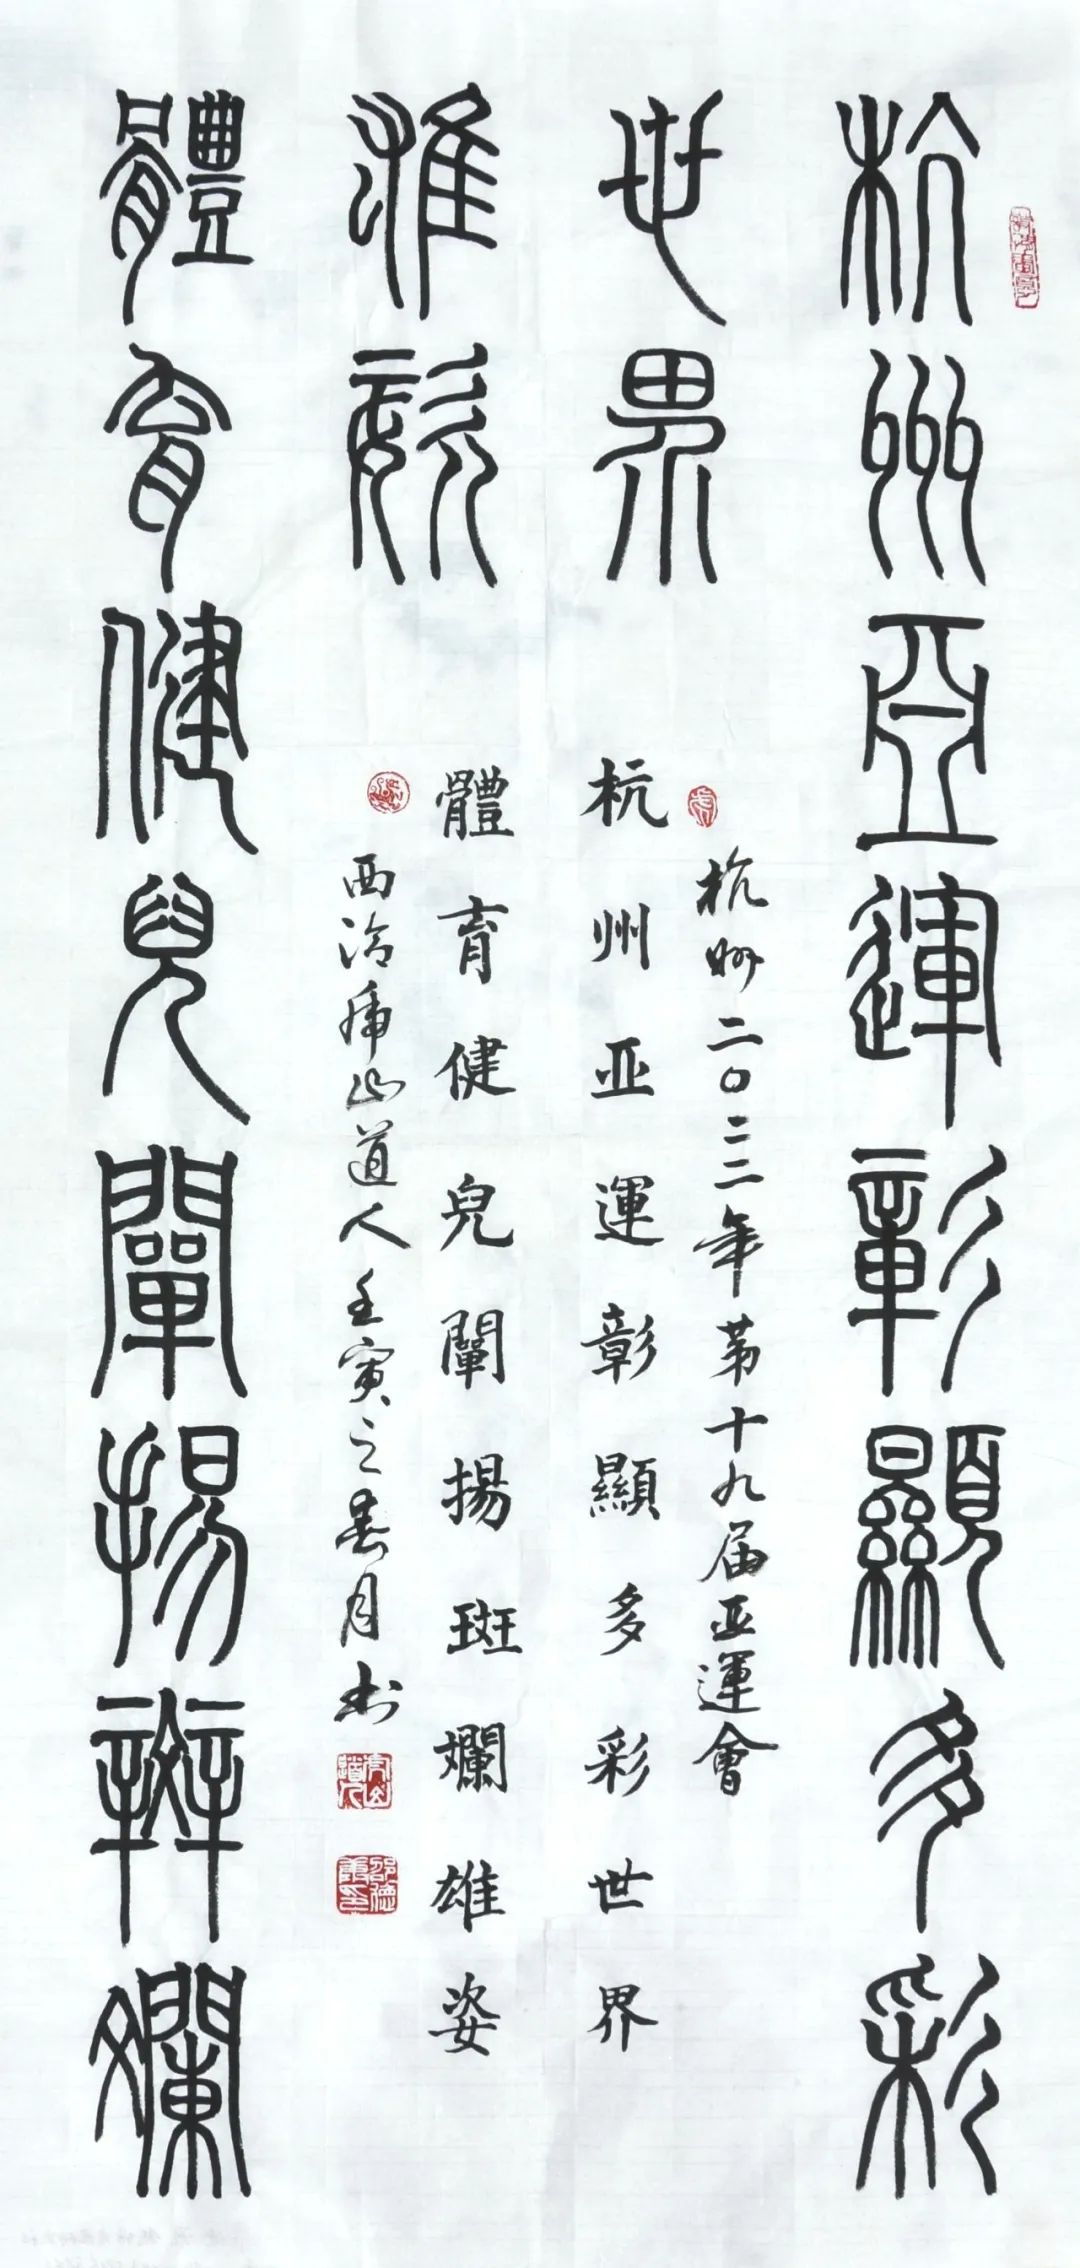 杭州亞運彰顯多彩
世界
體育健兒闡揚辬斕
雄姿
杭州二〇二二年第十九届亚運會
杭州亚運彰顯多彩世界
體育健兒闡揚斑斕雄姿
西泠虎山道人壬寅之春月书
虎山道人